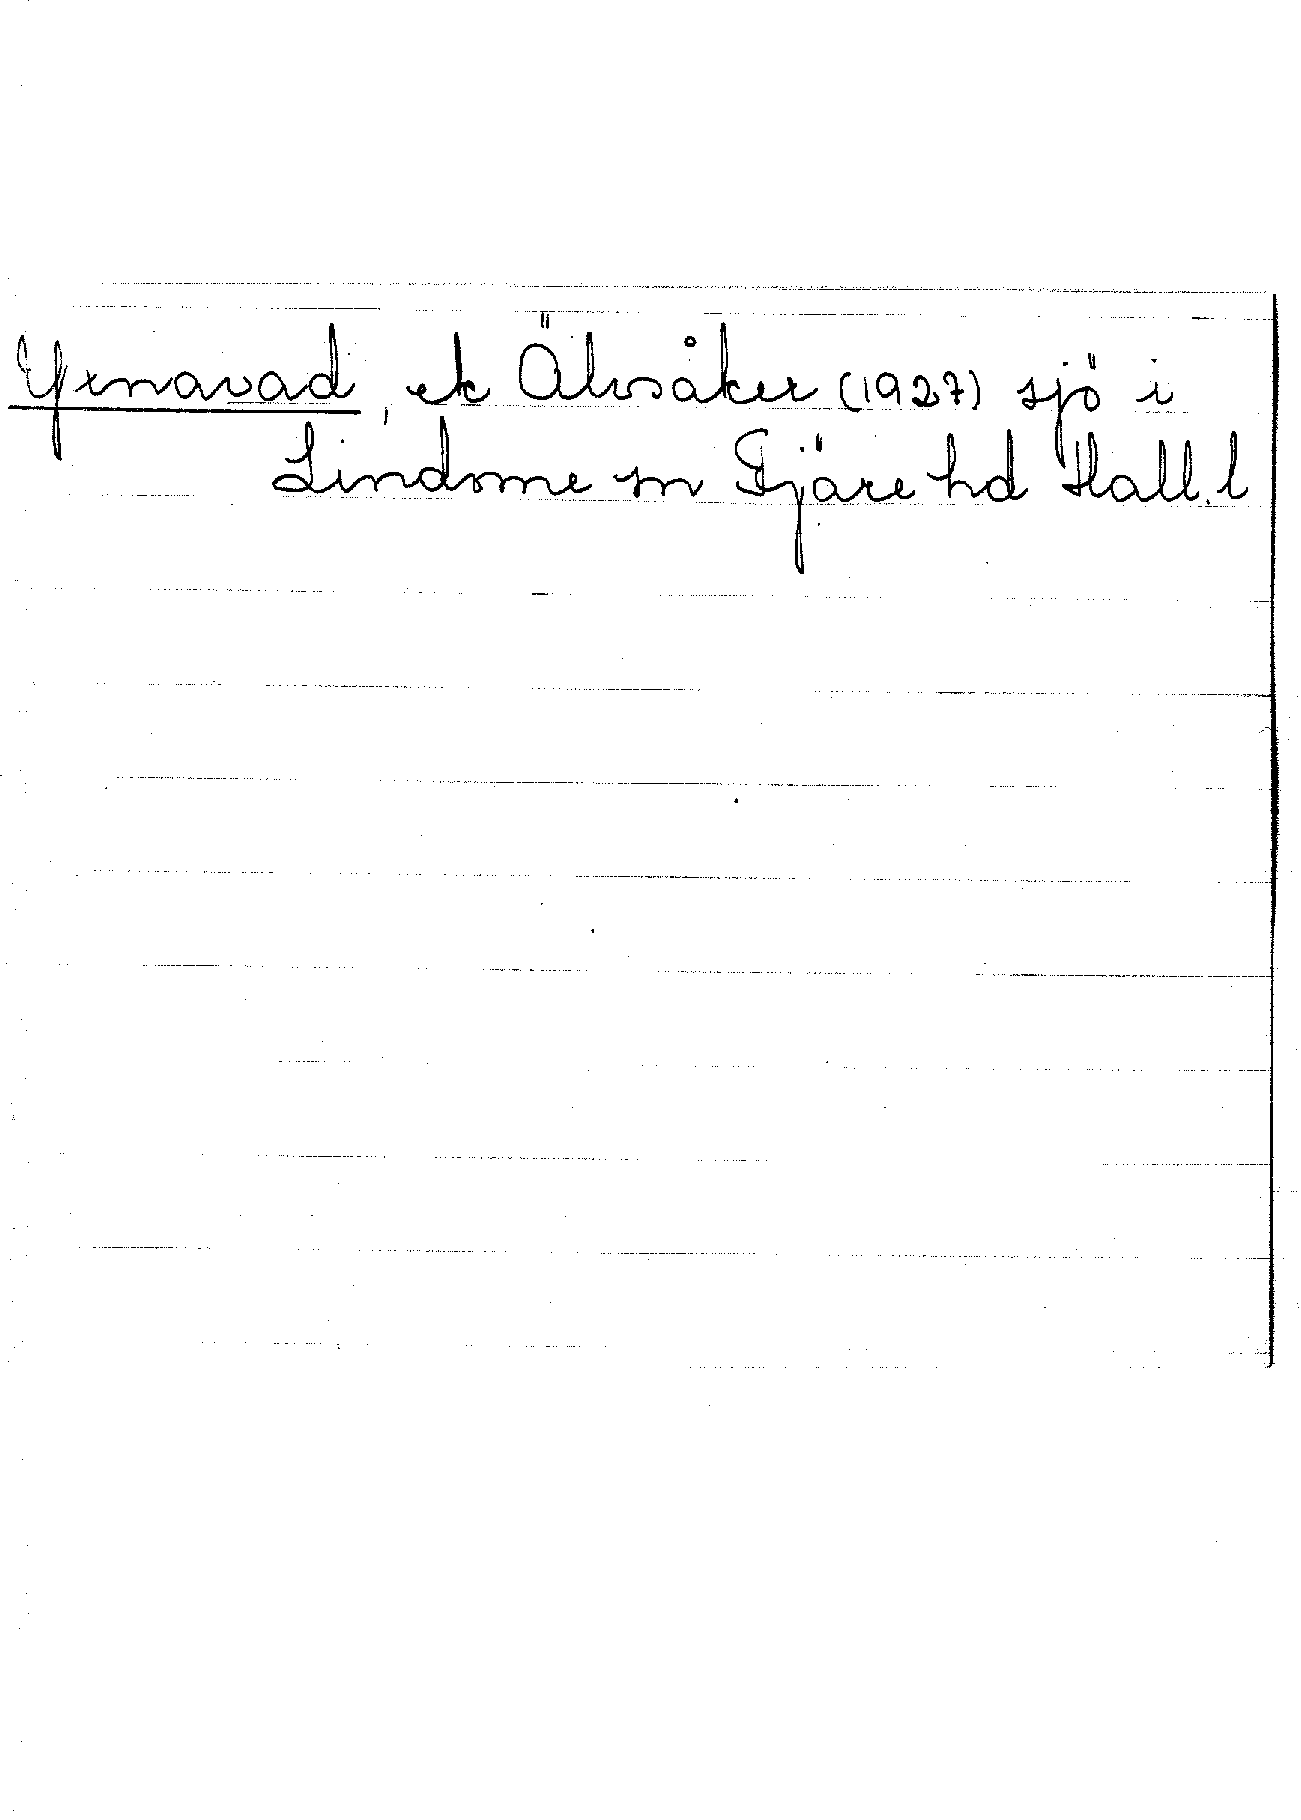 Yxnavad, ek Älvsåker (1927) sjö i
Lindome sn Fjäre hd Hall. l